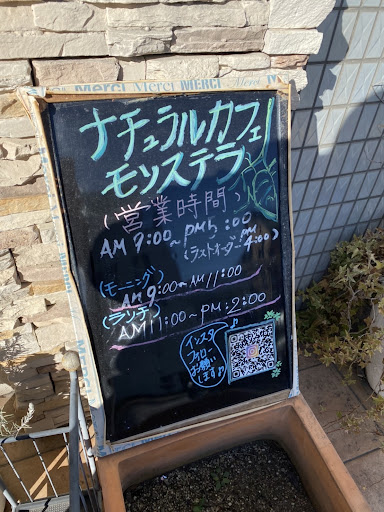 Merci Merci MERCI
ナチュラルカフェ
モンステラ
(営業時間)
AM 9:00〜PM5:00
(ラストオーダーPM4:00)
(モーニング)
AM9:00〜AM11:00
(ランチ)
AM11:00〜PM2:00
インスタ
フォロー
お願い
します♪